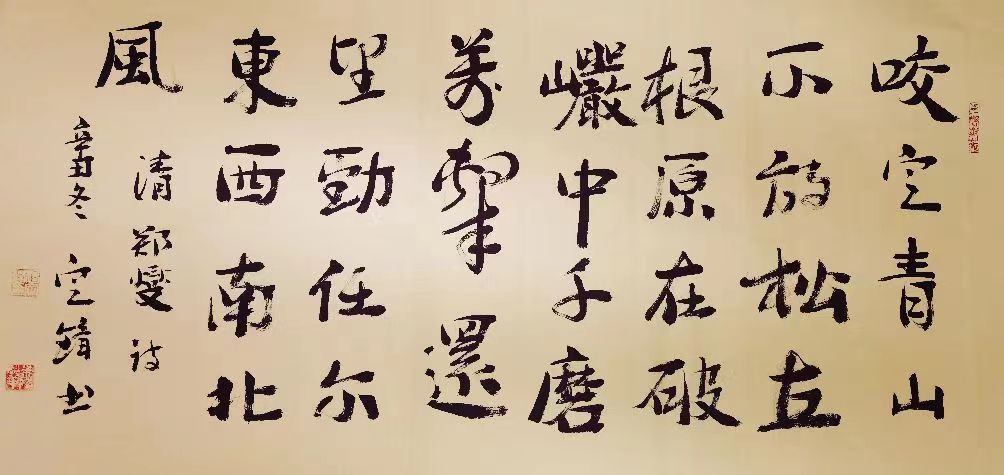 咬定青山
不放松立
根原在破
巗中千磨
萬擊還
坚勁任尔
東西南北
風
清郑燮诗
辛丑冬 定 书